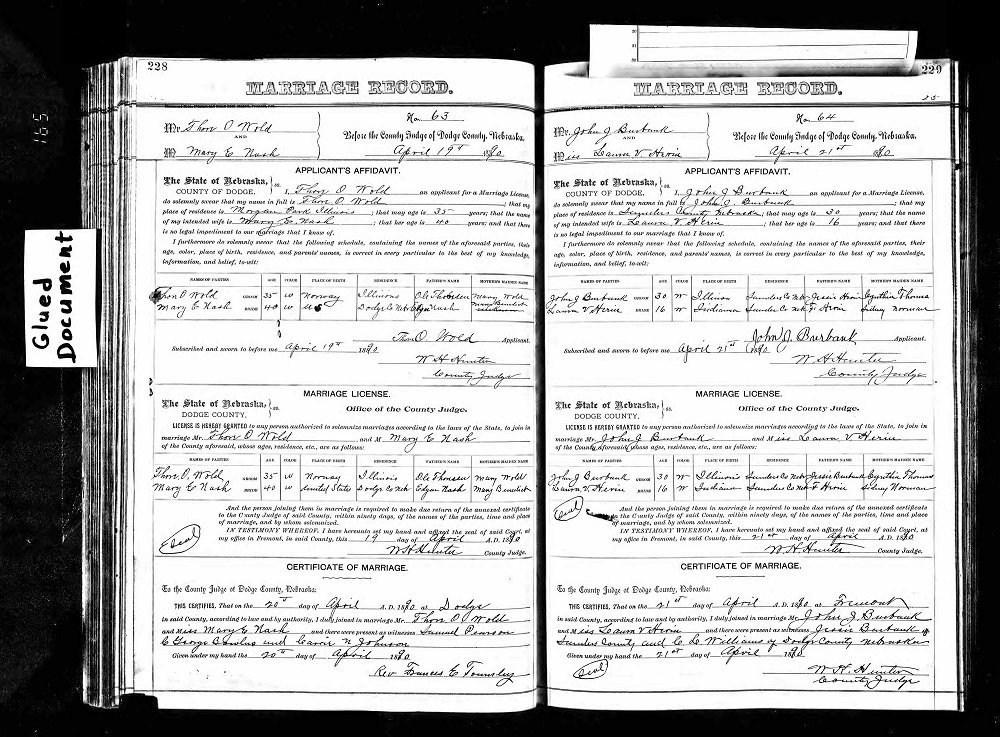 Glued
Document
165
228
MARRIAGE RECORD.
No 63
Mr. Thorv O Wold
AND
M Mary E Nash
Before the County Judge of Dodge County, Nebraska.
April 19th 1890
APPLICANT'S AFFIDAVIT.
The State of Nebraska, ss.
COUNTY OF DODGE.
I, Thorv O. Wold an applicant for a Marriage License,
do solemnly swear that my name in full is Thorv O. Wold ; that my
place of residence is Morgan Park Illinois ; that my age is 35 years; that the name
of my intended wife is Mary E. Nash ; that her age is 40 years; and that there
is no legal impediment to our marriage that I know of.
I furthermore do solemnly swear that the following schedule, containing the names of the aforesaid parties, their
age, color, place of birth, residence, and parents' names, is correct in every particular to the best of my knowledge,
information, and belief, to-wit:
NAMES OF PARTIES AGE COLOR PLACE OF BIRTH RESIDENCE FATHER'S NAME MOTHER'S MAIDEN NAME
Thorv O. Wold GROOM 35 W Norway Illinois Ole Thorssen Mary Wold
Mary E Nash BRIDE 40 W US Dodge Co Neb Edgar Nash Mary Benedict
Thorv O. Wold Applicant.
Subscribed and sworn to before me April 19th 1890
W H Hunter
County Judge
MARRIAGE LICENSE.
The State of Nebraska, ss.
DODGE COUNTY,
Office of the County Judge.
LICENSE IS HEREBY GRANTED to any person authorized to solemnize marriages according to the laws of the State, to join in
marriage Mr. Thorv O Wold and M Mary E Nash
of the County aforesaid, whose ages, residence, etc., are as follows:
NAMES OF PARTIES AGE COLOR PLACE OF BIRTH RESIDENCE FATHER'S NAME MOTHER'S MAIDEN NAME
Thorv. O. Wold GROOM 35 W Norway Illinois Ole Thorssen Mary Wold
Mary E Nash BRIDE 40 W United States Dodge Co Neb Edgar Nash Mary Benedict
And the person joining them in marriage is required to make due return of the annexed certificate
to the County Judge of said County, within ninety days, of the names of the parties, time and place
of marriage, and by whom solemnized.
IN TESTIMONY WHEREOF, I have hereunto set my hand and affixed the seal of said Court, at
my office in Fremont, in said County, this 19 day of April A.D. 1890
Seal
W H Hunter County Judge.
CERTIFICATE OF MARRIAGE.
To the County Judge of Dodge County, Nebraska:
THIS CERTIFIES, That on the 20th day of April A.D. 1890 at Dodge
in said County, according to law and by authority, I duly joined in marriage Mr. Thorv O Wold
and Miss Mary E Nash and there were present as witnesses Samuel Pearson
George and Carrie N Johnson
Given under my hand the 20th day of April 1890
Rev Frances E Townsley
229
MARRIAGE RECORD.
No 64
Mr. John J Burbank
AND
Miss Laura V. Hivin
Before the County Judge of Dodge County, Nebraska.
April 21st 1890
APPLICANT'S AFFIDAVIT.
The State of Nebraska, ss.
COUNTY OF DODGE.
I, John J Burbank an applicant for a Marriage License,
do solemnly swear that my name in full is John J. Burbank ; that my
place of residence is Saunders County Nebraska ; that my age is 30 years; that the name
of my intended wife is Laura V Hivin ; that her age is 16 years; and that there
is no legal impediment to our marriage that I know of.
I furthermore do solemnly swear that the following schedule, containing the names of the aforesaid parties, their
age, color, place of birth, residence, and parents' names, is correct in every particular to the best of my knowledge,
information, and belief, to-wit:
NAMES OF PARTIES AGE COLOR PLACE OF BIRTH RESIDENCE FATHER'S NAME MOTHER'S MAIDEN NAME
John J Burbank GROOM 30 W Illinois Saunders Co Neb Jessie Hivin Cynthia Thomas
Laura V Hivin BRIDE 16 W Indiana Saunders Co Neb F Hivin Sidney Norman
John J. Burbank Applicant.
Subscribed and sworn to before me April 21st 1890
W H Hunter
County Judge
MARRIAGE LICENSE.
The State of Nebraska, ss.
DODGE COUNTY.
Office of the County Judge.
LICENSE IS HEREBY GRANTED to any person authorized to solemnize marriages according to the laws of the State, to join in
marriage Mr. John J Burbank and Miss Laura V Hivin
of the County aforesaid, whose ages, residence, etc., are as follows:
NAMES OF PARTIES AGE COLOR PLACE OF BIRTH RESIDENCE FATHER'S NAME MOTHER'S MAIDEN NAME
John J Burbank GROOM 30 W Illinois Saunders Co Neb Jessie Burbank Cynthia Thomas
Laura V. Hivin BRIDE 16 W Indiana Saunders Co Neb F Hivin Sidney Norman
And the person joining them in marriage is required to make due return of the annexed certificate
to the County Judge of said County, within ninety days, of the names of the parties, time and place
of marriage, and by whom solemnized.
IN TESTIMONY WHEREOF, I have hereunto set my hand and affixed the seal of said Court, at
my office in Fremont, in said County, this 21st day of April A.D. 1890
Seal
W H Hunter County Judge.
CERTIFICATE OF MARRIAGE.
To the County Judge of Dodge County, Nebraska:
THIS CERTIFIES, That on the 21st day of April A.D. 1890 at Fremont
in said County, according to law and by authority, I duly joined in marriage Mr. John J Burbank
and Miss Laura V Hivin and there were present as witnesses Jessie Burbank of
Saunders County and C. L. Williams of Dodge County Nebraska
Given under my hand the 21st day of April 1890
Seal
W. H. Hunter
County Judge